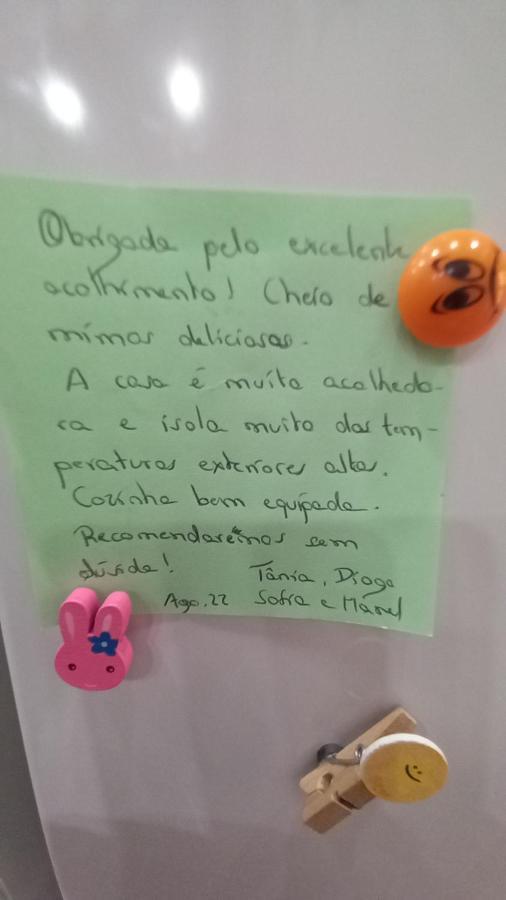 Obrigada pelo excelente
acolhimento! Cheio de
mimos deliciosos.
A casa é muito acolhedo-
ra e isola muito das tem-
peraturas exteriores altas.
Cozinha bem equipada.
Recomendaremos sem
dúvida!
Tânia, Diogo
Ago. 22 Sofia e Manel